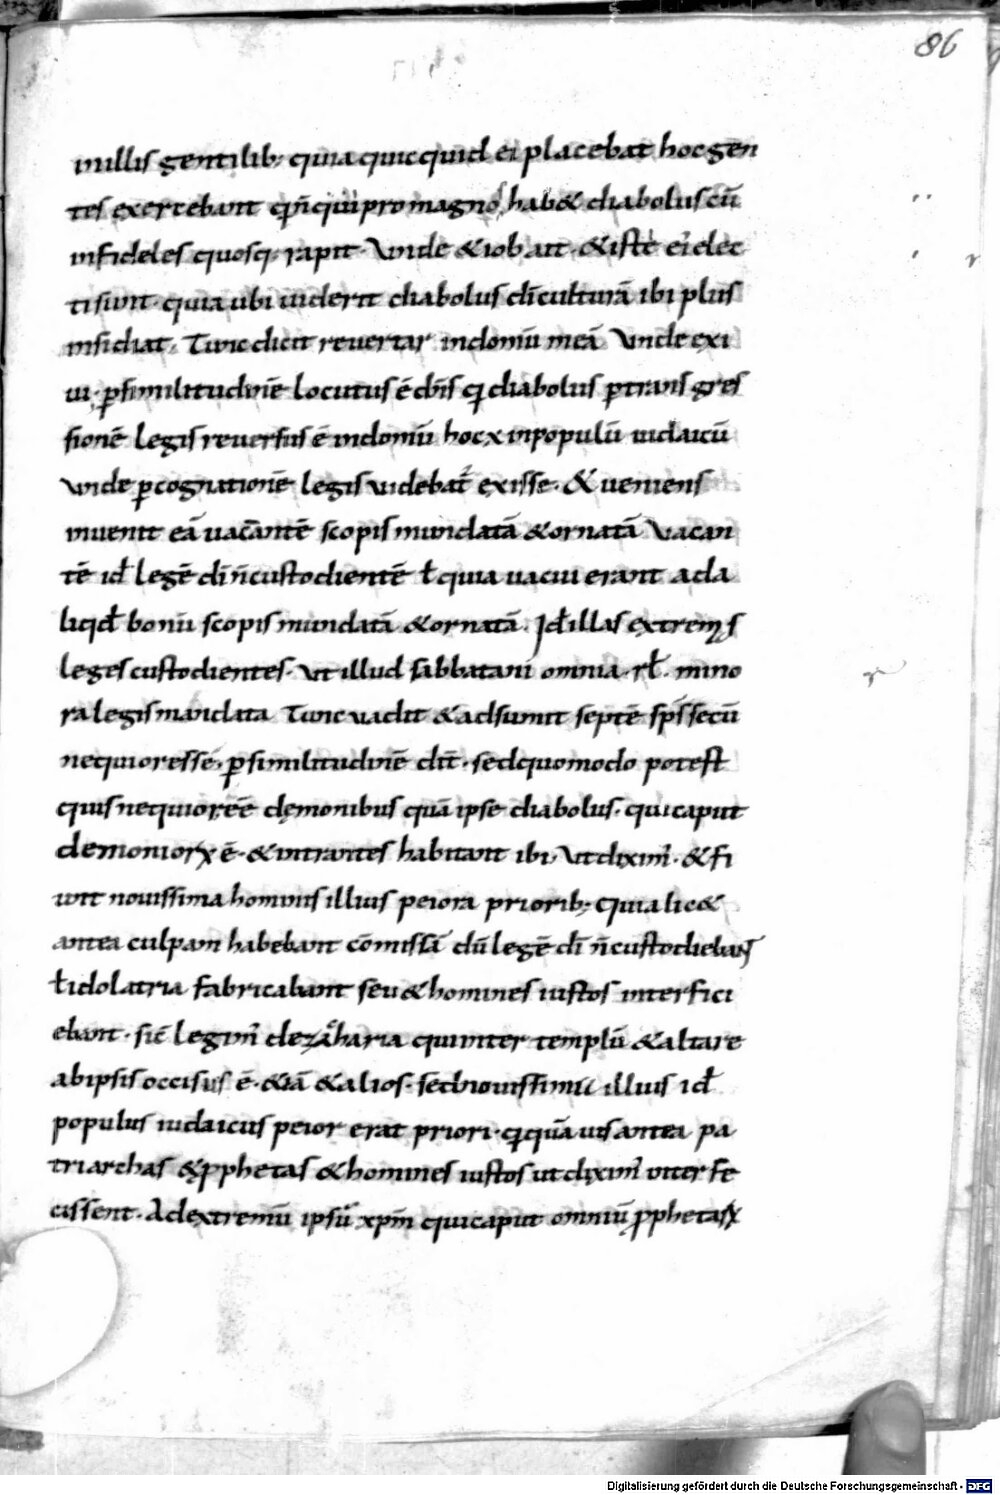 86
inillis gentilib; quia quicquid ei placebat hoc gen
tes exercebant qn̄ qui pro magno hab& diabolus cū
infideles quosq; rapit. Vnde & iob ait. & iste ei elec
ti sunt. quia ubi uiderit diabolus dī culturā ibi plus
insidiat. Tunc dicit reuertar indomū meā Vnde exi
ui. ꝑ similitudinē locutus ē dn̄s q̇ diabolus ꝑ trans gres
sionē legis reuersus ē indomū hoc x inpopulū iudaicū
Vnde ꝑ cognationē legis videbat̄ exisse. & ueniens
inuenit eā uacantē scopis mundatā & ornatā Vacan
tē id̄ legē dī n̄ custodientē ł quia uacui erant ada
liqd̄ bonū scopis mundatā & ornatā. Id̄ illas extremęs
leges custodientes. Vt illud sabbatani omnia. rł. mino
ra legis mandata Tunc uadit & adsumit septē sps̄ secū
nequiores se. ꝑ similitudinē dix̄. sed quomodo potest
quis nequior ēē dęmonibus quā ipse diabolus. qui caput
demoniorꝝ ē. & intrantes habitant ibi. Vt diximꝰ. & fi
unt nouissima hominis illius peiora priorib; Quia lic&
antea culpam habebant cōmissā dū legē dī n̄ custodiebant
ł idolatria fabricabant seu & homines iustos interfici
ebant. sic̄ legimꝰ de zaͨharia qui inter templū & altare
ab ipsis occisus ē. & iā & alios. sed nouissimū illius id̄
populus iudaicus peior erat priori. q̇ quāuis antea pa
triarchas & ꝓphetas & homines iustos ut diximꝰ interfe
cissent. Ad extremū ipsū xp̄m qui caput omniū ꝓphetarꝝ
Digitalisierung gefördert durch die Deutsche Forschungsgemeinschaft - DFG